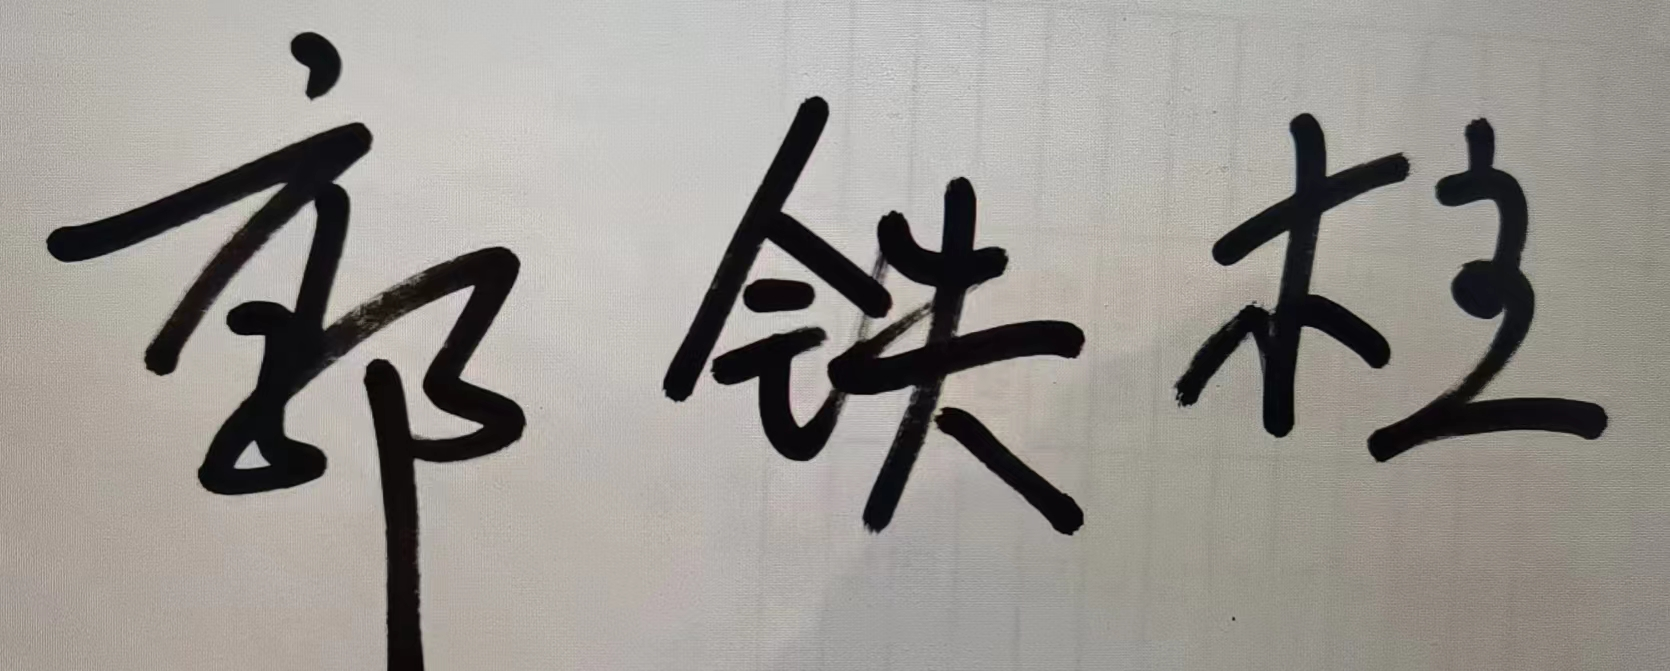 郭铁柱